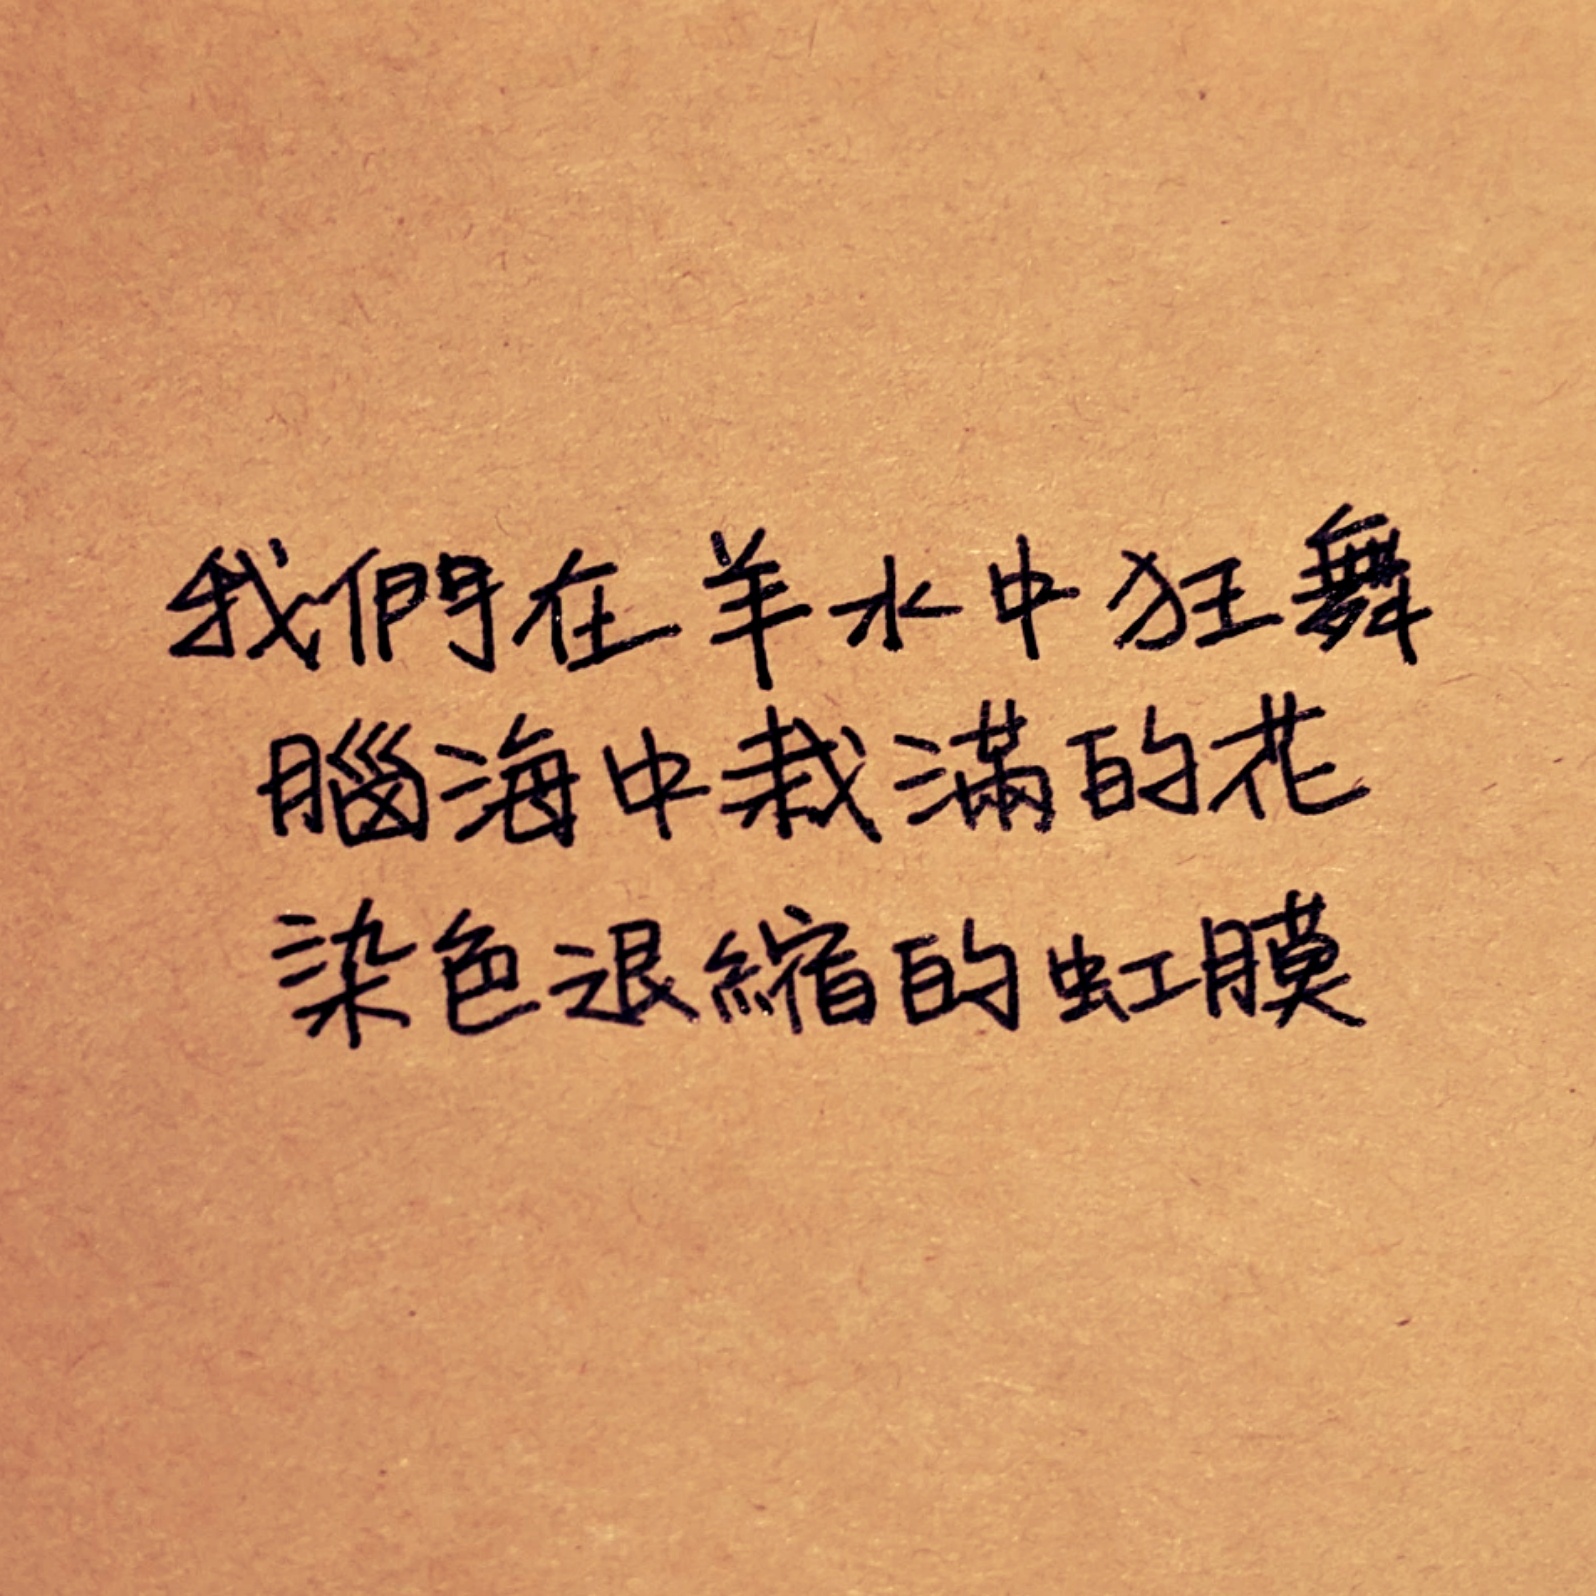 我們在羊水中狂舞
腦海中栽滿的花
染色退縮的虹膜